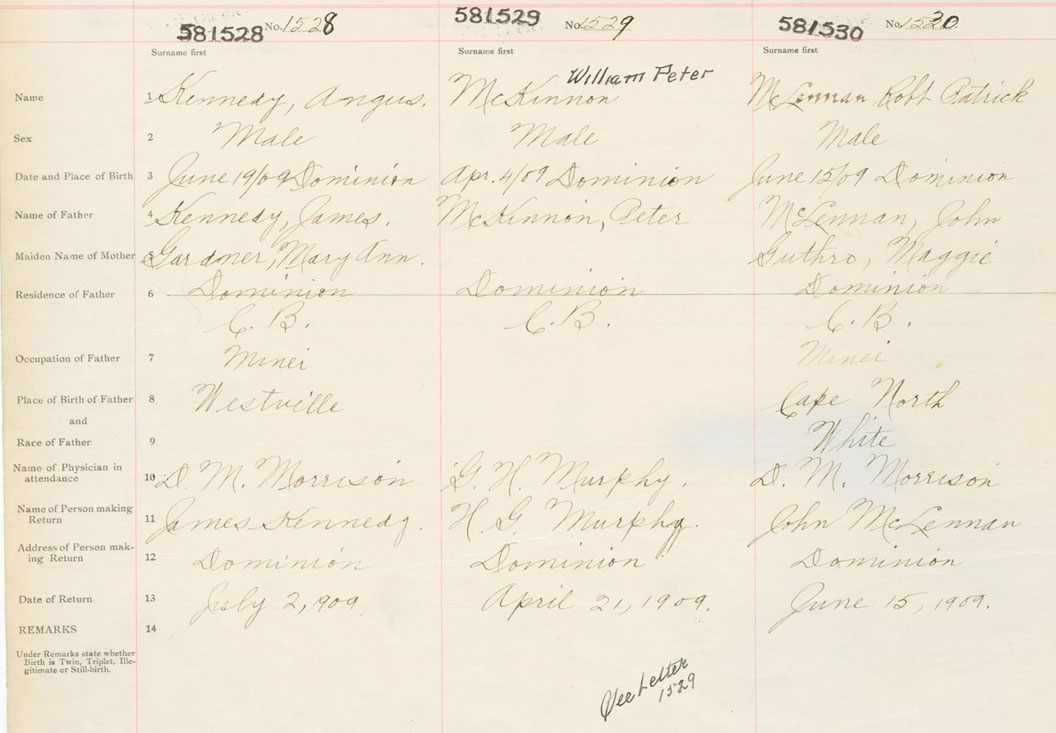 581528 No. 1528 581529 No. 1529 581530 No. 1530
Surname first Surname first Surname first
William Peter
Name 1 Kennedy, Angus. McKinnon McLennan Robt Patrick
Sex 2 Male Male Male
Date and Place of Birth 3 June 19/09 Dominion Apr. 4/09 Dominion June 15/09 Dominion
Name of Father 4 Kennedy, James. McKinnon, Peter McLennan, John
Maiden Name of Mother 5 Gardner, Mary Ann. Guthro, Maggie
Residence of Father 6 Dominion Dominion Dominion
C. B. C. B. C. B.
Occupation of Father 7 Miner Miner
Place of Birth of Father 8 Westville Cape North
and
Race of Father 9 White
Name of Physician in
attendance 10 D. M. Morrison G. H. Murphy. D. M. Morrison
Name of Person making
Return 11 James Kennedy. H. G. Murphy. John McLennan
Address of Person mak-
ing Return 12 Dominion Dominion Dominion
Date of Return 13 July 2, 909 April 21, 1909. June 15, 1909.
REMARKS 14
Under Remarks state whether
Birth is Twin, Triplet, Ille-
gitimate or Still-birth.
See Letter
1529